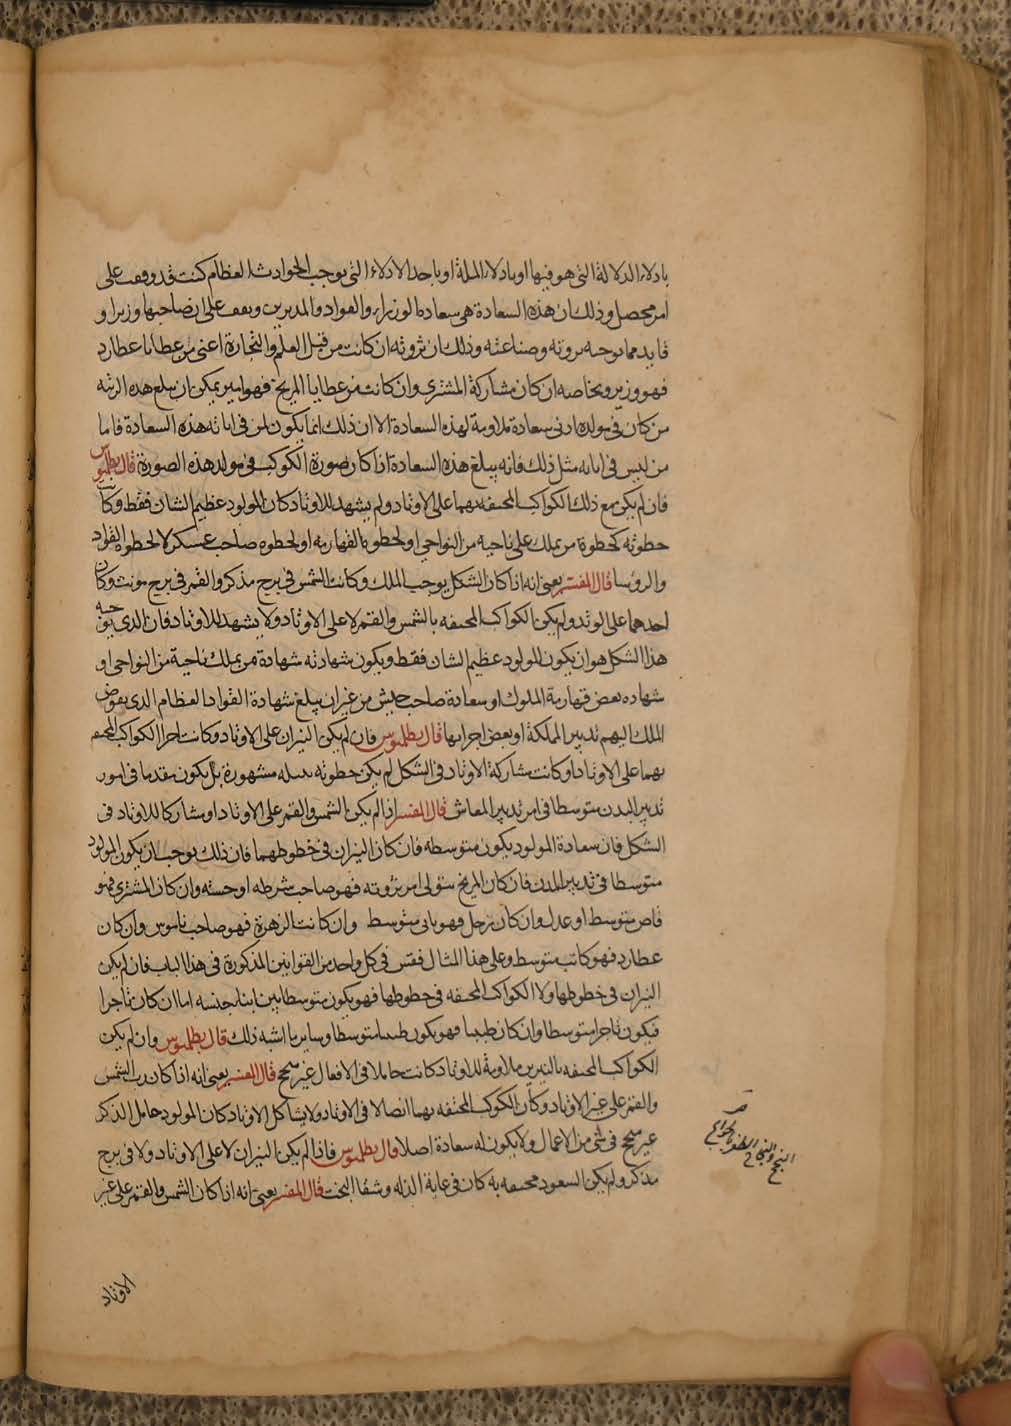 بادلاء الدلالة التى هو فيها او بادلاء الملة او باحد الادلاء التى يوجب الحوادث العظام كنت قد وقفت على
امر محصل وذلك ان هذه السعادة هى سعادة الوزراء والقواد والمدبرين ويقف على ان صاحبها وزيرا و
قايد مما يوجبه ثروته وصناعته وذلك ان ثروته ان كانت من قبل العلم والتجارة اعنى من عطايا عطارد
فهو وزير وبخاصه ان كان مشاركة المشترى وان كانت من عطايا المريخ فهو امير يمكن ان يبلغ هذه الرتبه
من كان فى مولده ادنى سعادة ملاومة لهذه السعادة الا ان ذلك انما يكون لمن فى ابائه هذه السعادة فاما
من ليس فى ابائه مثل ذلك فانه يبلغ هذه السعادة اذا كان صورة الكوكب فى مولد هذه الصورة قال بطلميوس
فان لم يكن مع ذلك الكواكب المحتفه بهما على الاوتاد ولم يشهد للاوتاد كان المولود عظيم الشان فقط وكان
حظوته كحظوة من يملك على ناحيه من النواحى او لحظوة القهارمه او لحظوه صاحب عسكر لا لحظوه القواد
والروسا قال المفسر يعنى انه اذا كان الشكل يوجب الملك وكانت الشمس فى برج مذكر والقمر فى برج مونث وكان
احدهما على الوتد ولم يكن الكواكب المحتفه بالشمس والقمر لا على الاوتاد ولا يشهد للاوتاد فان الذى يوجبه
هذا الشكل هو ان يكون المولود عظيم الشان فقط ويكون شهادته شهادة من يملك ناحية من النواحى او
شهاده بعض قهارمة الملوك او سعادة صاحب جيش من غير ان يبلغ شهادة القواد العظام الذى يفوض
الملك اليهم تدبير المملكة او بعض اجزائها قال بطلميوس فان لم يكن النيران على الاوتاد وكانت اجزا الكواكب المحتفه
بهما على الاوتاد او كانت مشاركة الاوتاد فى الشكل لم يكن حظوته مشهورة بل يكون مقدما فى امور
تدبير المدن متوسطا فى امر تدبير المعاش قال المفسر اذا لم يكن الشمس والقمر على الاوتاد او مشاركا للاوتاد فى
الشكل فان سعادة المولود يكون متوسطه فان كان النيران فى حظوظهما فان ذلك يوجب ان يكون المولود
متوسطا فى تدبير المدن فان كان المريخ متولى امر ثروته فهو صاحب شرطه او حسبه وان كان المشترى فهو
قاض متوسط او عدل وان كان زحل فهو بانى متوسط وان كانت الزهرة فهو صاحب ناموس وان كان
عطارد فهو كاتب متوسط وعلى هذا المثال فقس فى كل واحد من القوانين المذكورة فى هذا الباب فان لم يكن
النيران فى حظوظها ولا الكواكب المحتفه فى حظوظها فهو يكون متوسطا بين ابناء جنسه اما ان كان تاجرا
فيكون تاجرا متوسطا وان كان طبيبا فهو يكون طبيبا متوسطا وساير ما اشبه ذلك قال بطلميوس وان لم يكن
الكواكب المحتفه بالنيرين ملاومة للاوتاد كانت حاملا فى الافعال غير منجح قال المفسر يعنى انه اذا كان رب الشمس
والقمر على غير الاوتاد وكان الكوكب المحتفه بهما اتصالا فى الاوتاد ولا يشاكل الاوتاد كان المولود خامل الذكر
غير منجح فى شى من الاعمال ولا يكون له سعادة اصلا قال بطلميوس فاذا لم يكن النيران لا على الاوتاد ولا فى برج
مذكر ولم يكن السعود محتفه به كان فى غاية الذله وشقا البخت قال المفسر يعنى انه اذا كان الشمس والقمر على غير
النجح والنجاح الظفر بالحوائج
الاوتاد